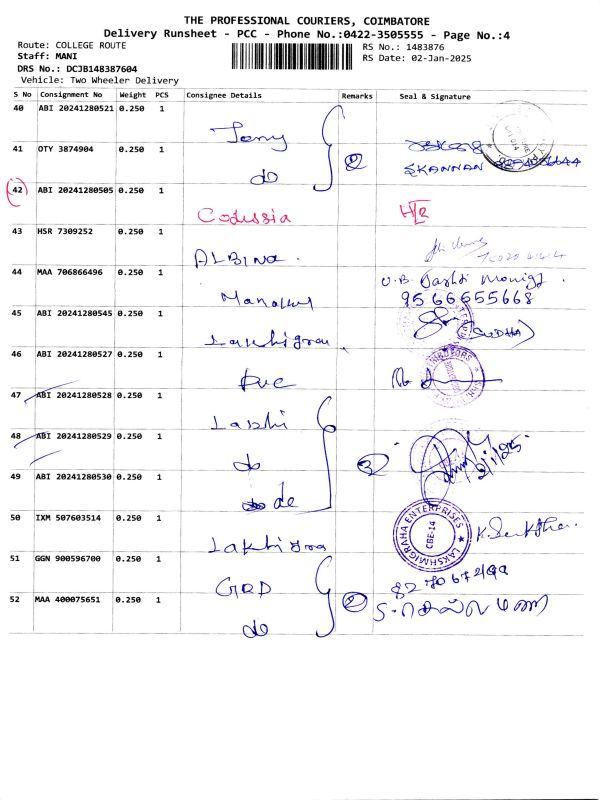 THE PROFESSIONAL COURIERS, COIMBATORE
Delivery Runsheet - PCC - Phone No.:0422-3505555 - Page No.:4
Route: COLLEGE ROUTE
RS No.: 1483876
Staff: MANI
RS Date: 02-Jan-2025
DRS No.: DCJB148387604
Vehicle: Two Wheeler Delivery
S No Consignment No Weight PCS Consignee Details Remarks Seal & Signature
40 ABI 20241280521 0.250 1
Jerry
41 OTY 3874904 0.250 1
do 2 SKANNAN
42 ABI 20241280505 0.250 1
Codissia
43 HSR 7309252 0.250 1
ALBINA.
44 MAA 706866496 0.250 1
9566655668
45 ABI 20241280545 0.250 1
(SUDHA)
46 ABI 20241280527 0.250 1
47 ABI 20241280528 0.250 1
48 ABI 20241280529 0.250 1
do 3 2/1/25
49 ABI 20241280530 0.250 1
do
50 IXM 507603514 0.250 1
LAKSHMIGRAHA ENTERPRISES
CBE-14
51 GGN 900596700 0.250 1
GRD
52 MAA 400075651 0.250 1
do 2 S. செல்வமணி